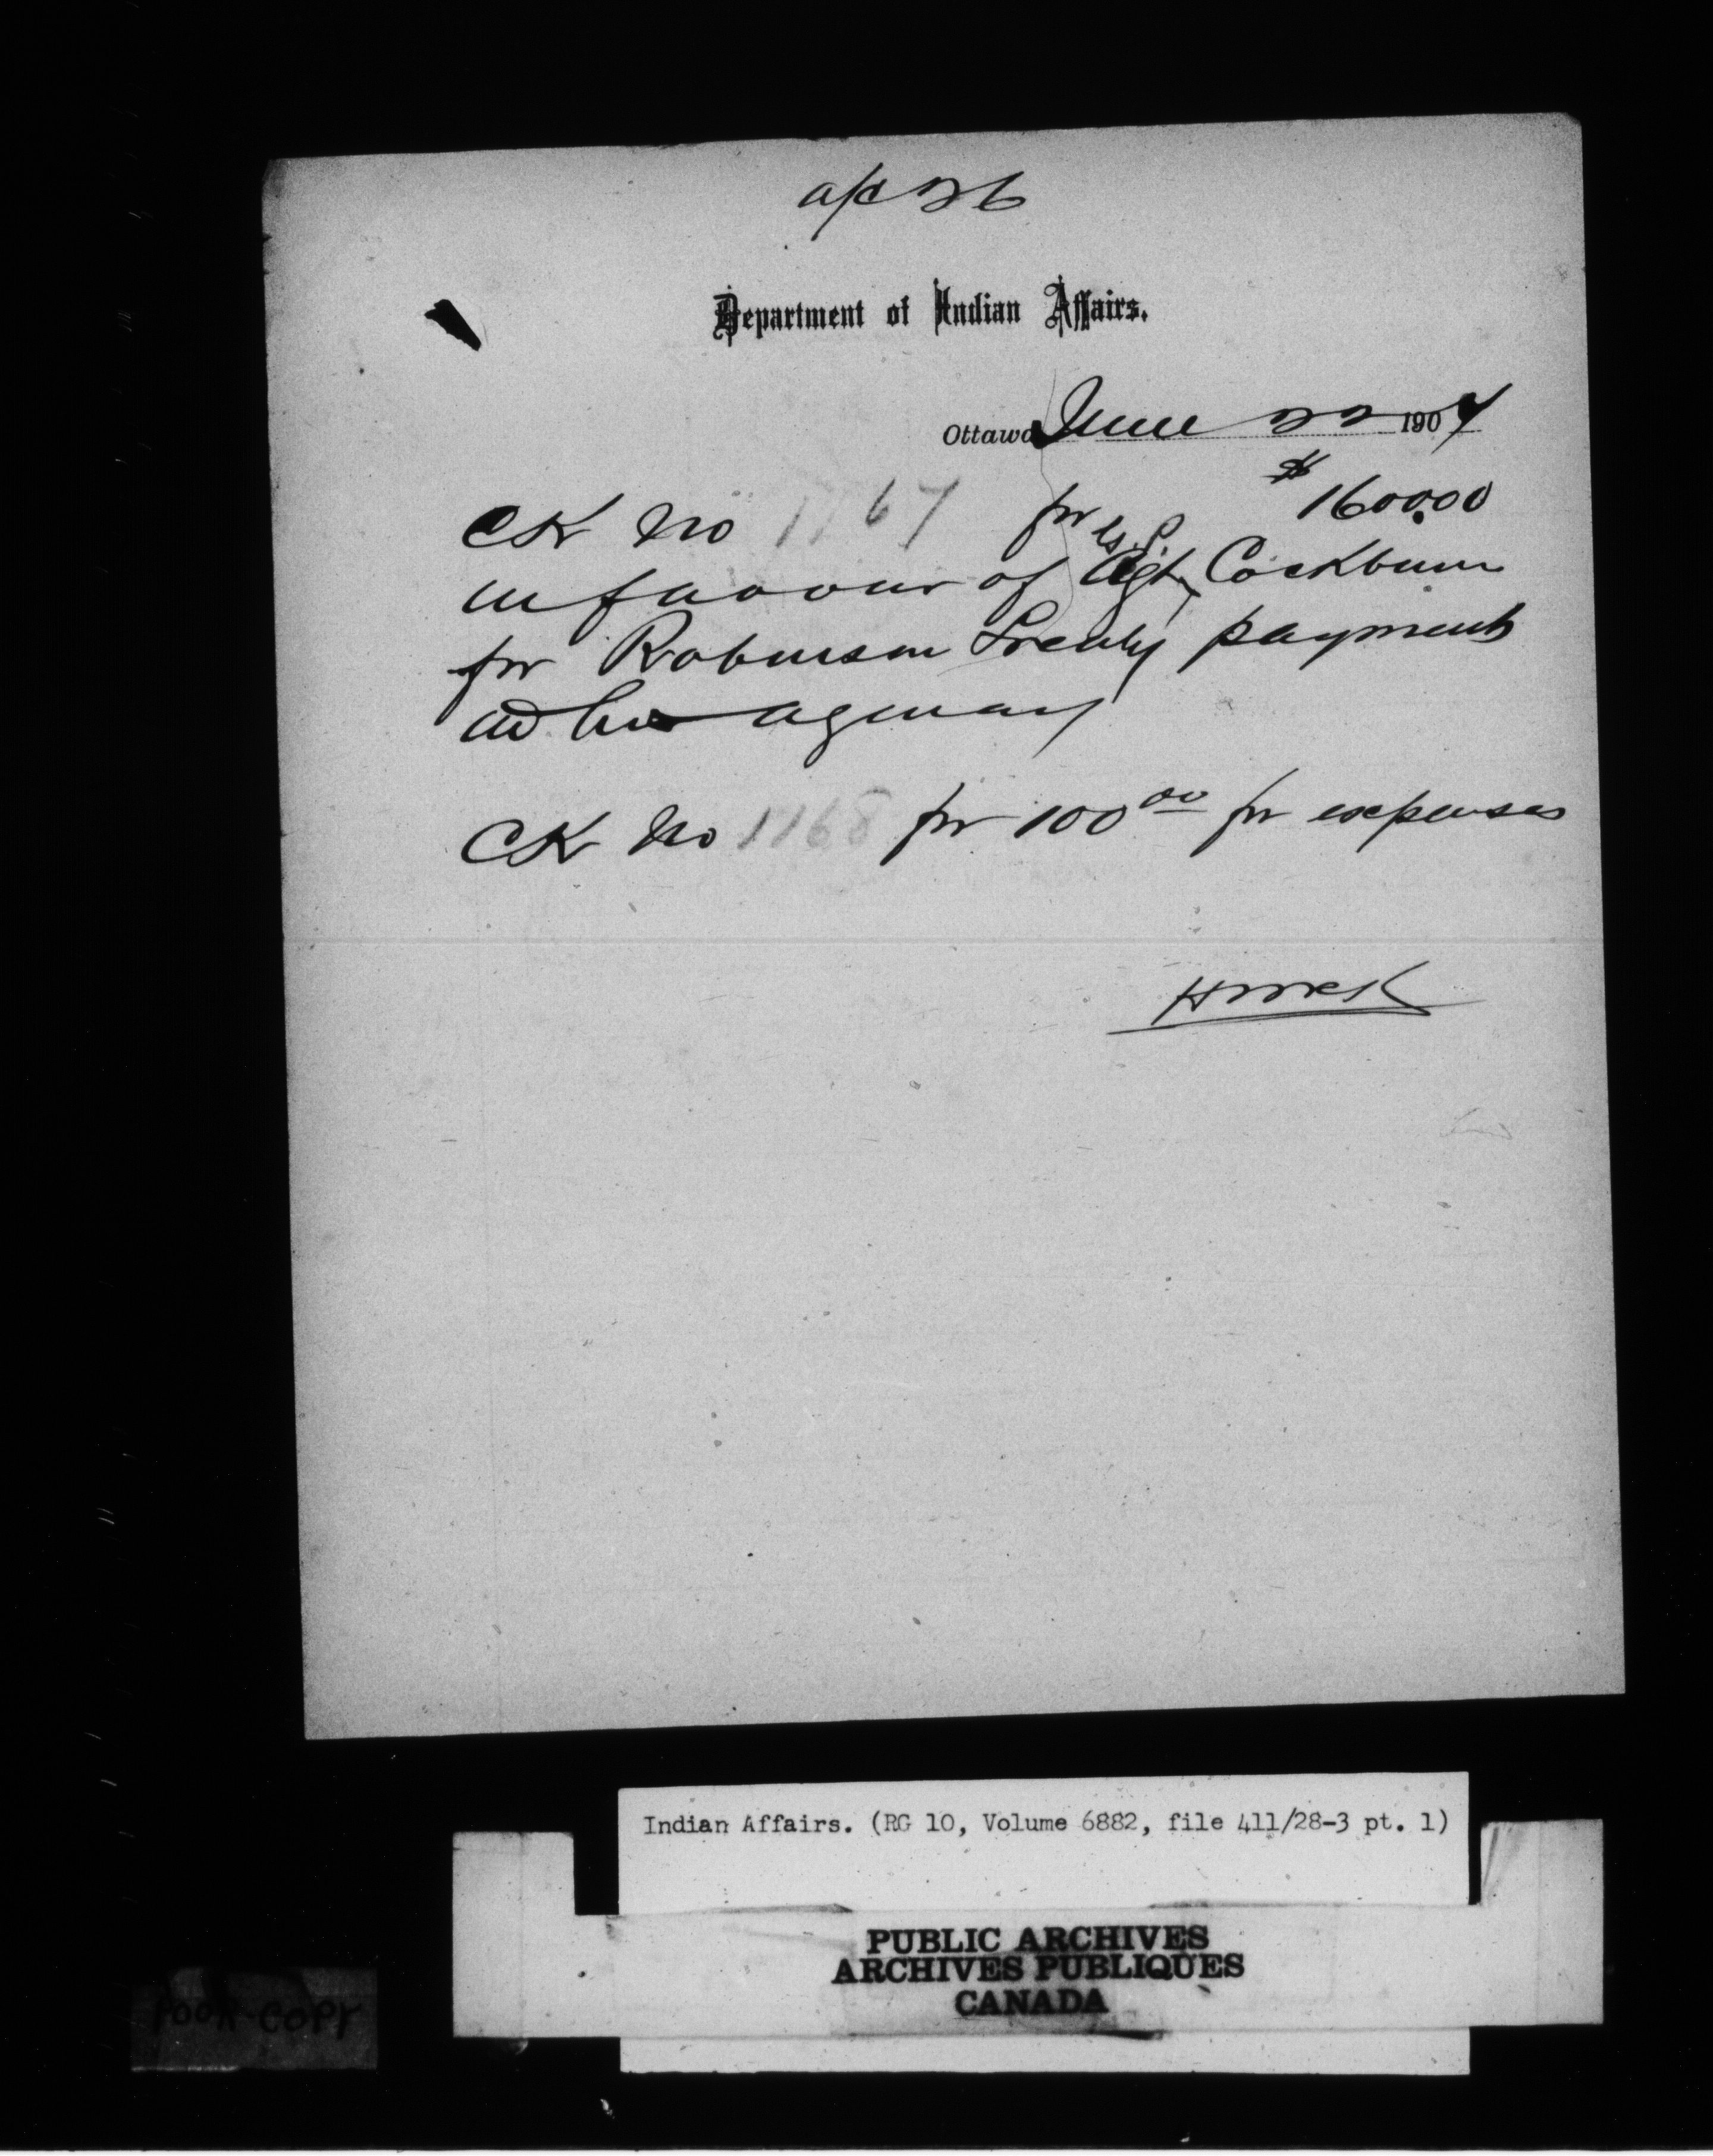 a/c 26
Department of Indian Affairs.
Ottawa June 22 1904
CK No 1167 for $1600.00
in favour of Agt. Cockburn
for Robinson Treaty payments
in his agency
CK No 1168 for 100 00 for expenses
Indian Affairs. (RG 10, Volume 6882, file 411/28-3 pt. 1)
PUBLIC ARCHIVES
ARCHIVES PUBLIQUES
CANADA
POOR COPY